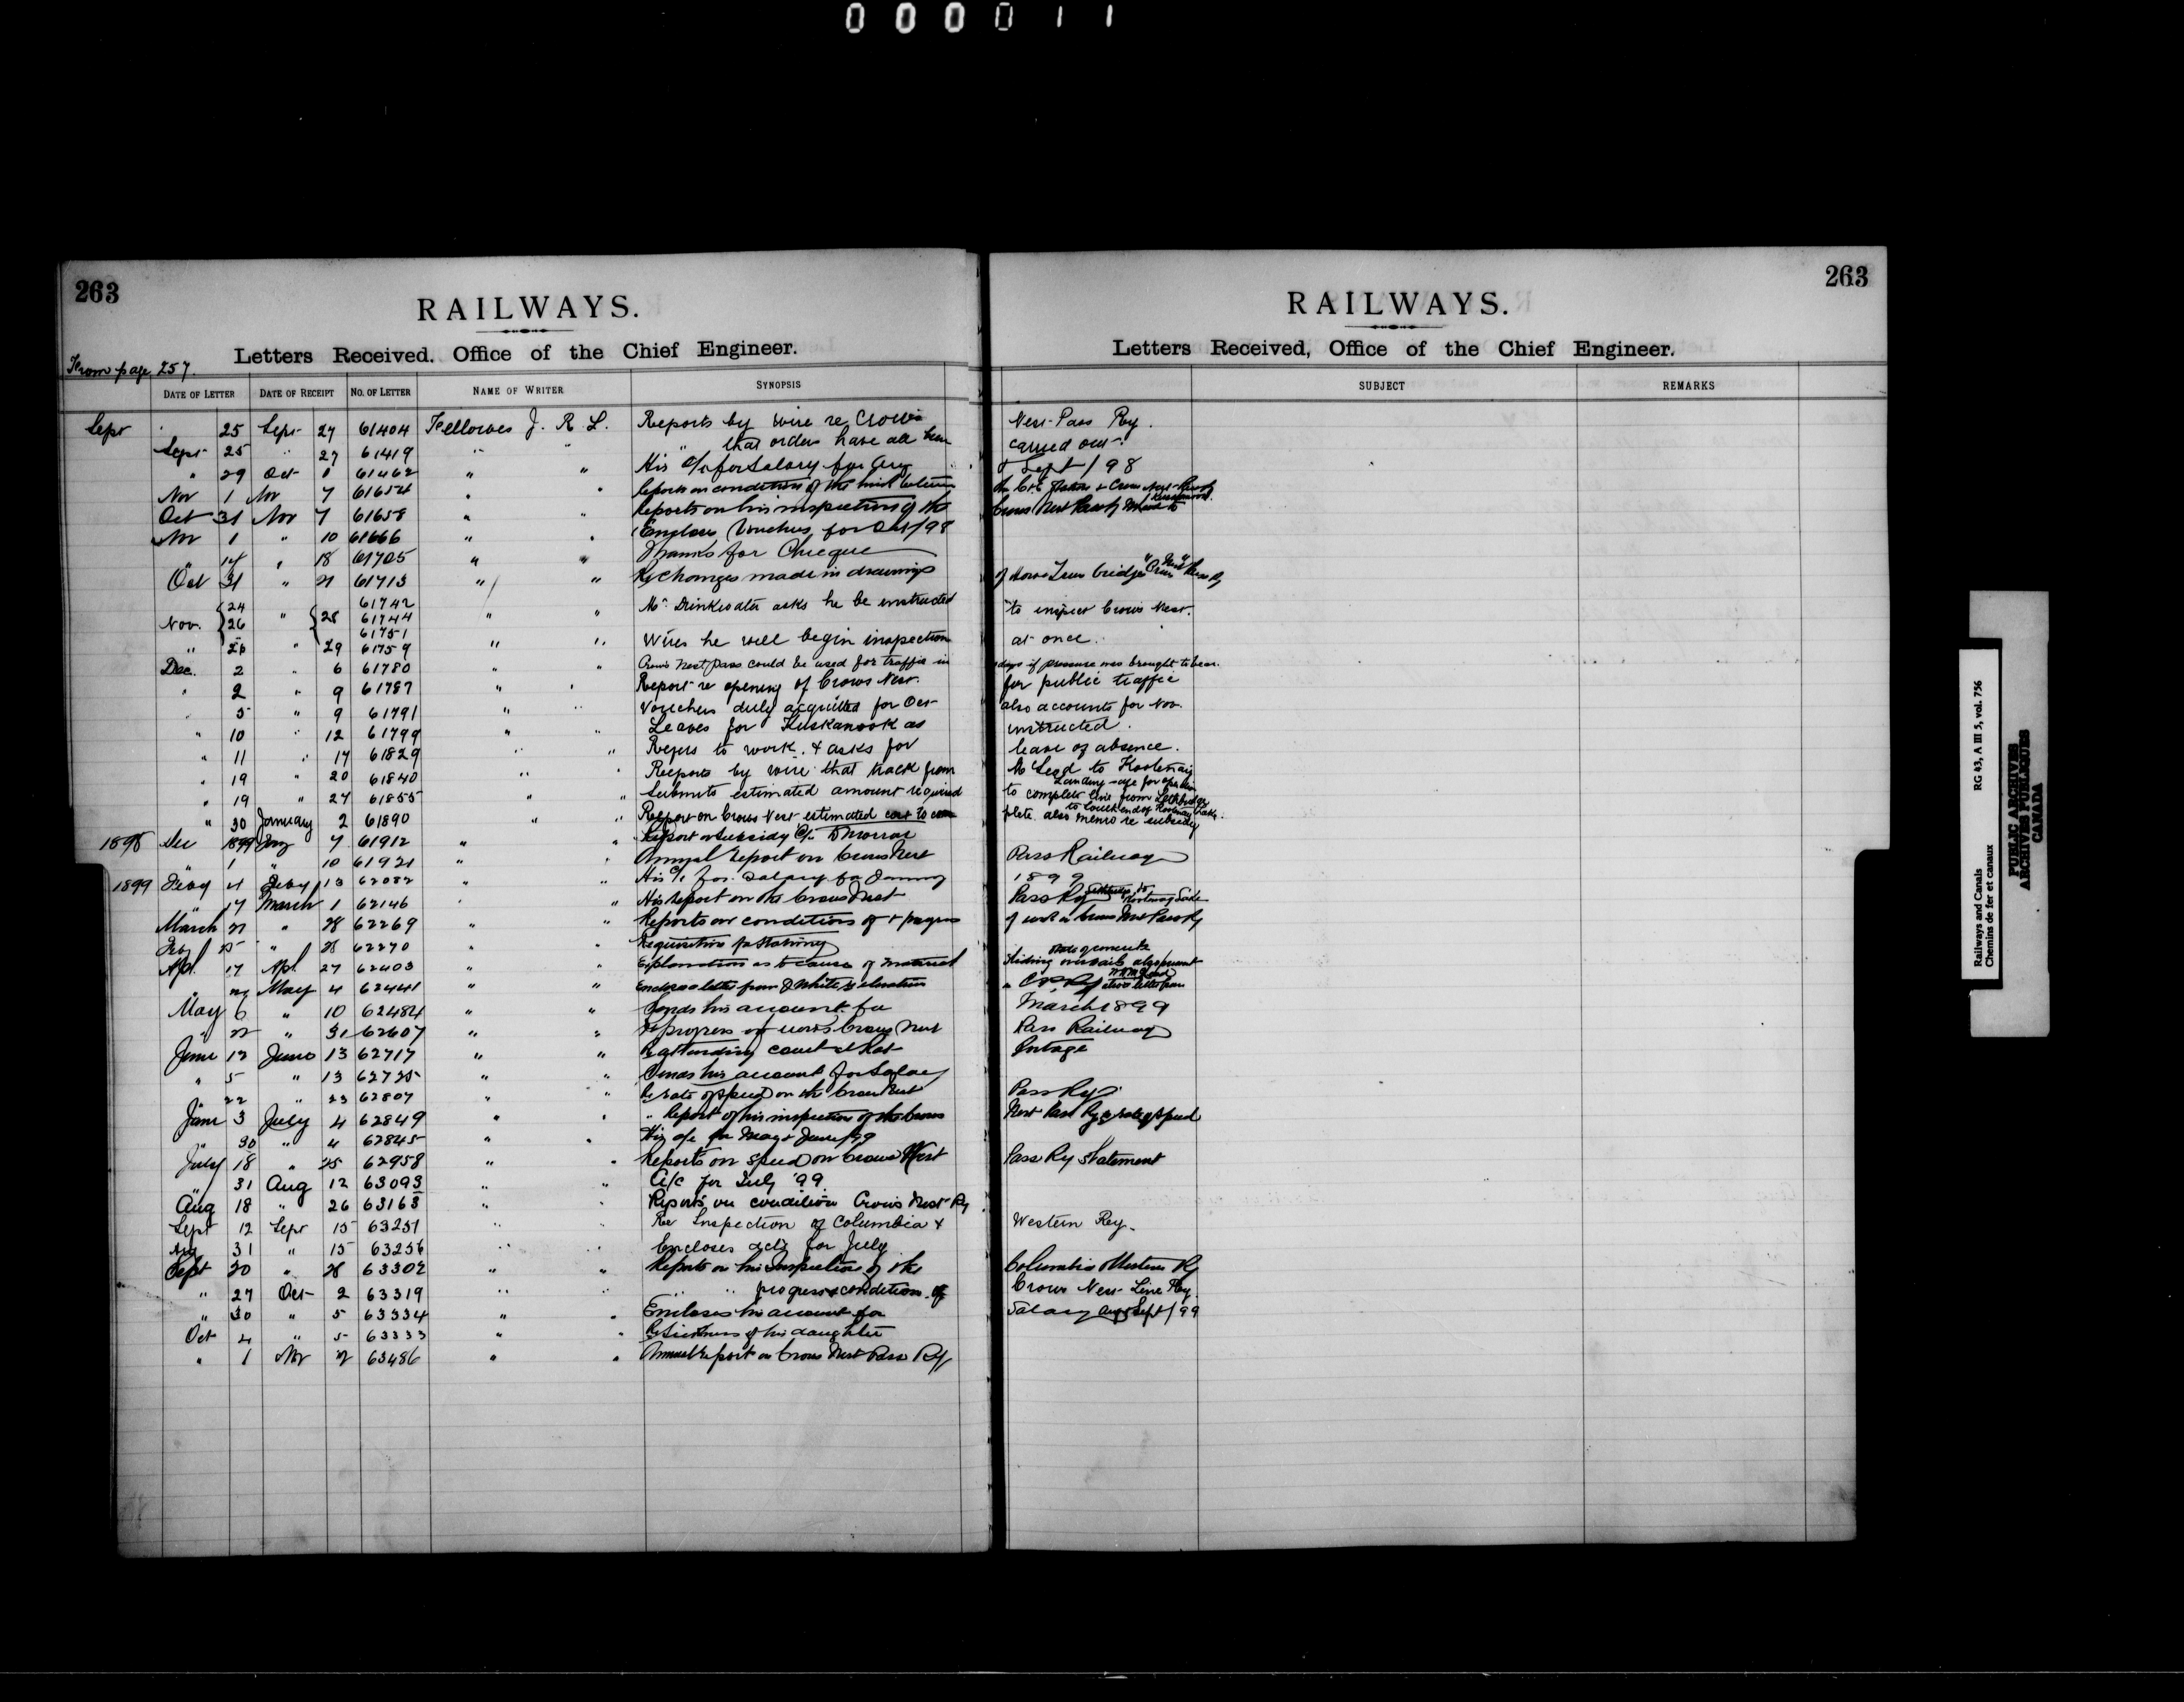 000011
263
RAILWAYS.
Letters Received. Office of the Chief Engineer.
From page 257.
DATE OF LETTER DATE OF RECEIPT NO. OF LETTER NAME OF WRITER SYNOPSIS
263
RAILWAYS.
Letters Received, Office of the Chief Engineer.
SUBJECT REMARKS
Sept 25 Sept 27 61404 Fellowes J. R L. Reports by wire re Crow's Nest Pass Ry.
Sept 25 " 27 61419 " " " that orders have all been carried out.
" 29 Oct 1 61462 " " His a/c for Salary for Aug & Sept / 98
Nov 1 Nov 7 61654 " " Reports on condition of the
Oct 31 Nov 7 61658 " " Reports on his inspection of the Crows Nest Pass Ry
Nov 1 " 10 61666 " " Encloses Vouchers for Oct / 98
" 14 " 18 61705 " " Thanks for Cheque
Oct 31 " 21 61713 " " Re Changes made in drawings of Howe Truss bridges "Crows Nest" Pass Ry
Nov. { 24 26 " { 28 61742 61744 61751 " " Mr. Drinkwater asks he be instructed to inspect Crows Nest.
" 26 " 29 61759 " " Wires he will begin inspection at once.
Dec. 2 " 6 61780 " " Crows Nest Pass could be used for traffic in days if pressure was brought to bear.
" 2 " 9 61787 " " Report re opening of Crows Nest. for public traffic
" 5 " 9 61791 " " Vouchers duly acquitted for Oct also accounts for Nov.
" 10 " 12 61799 " " Leaves for Kuskanook as instructed.
" 11 " 17 61829 " " Refers to work. & asks for leave of absence.
" 19 " 20 61840 " " Reports by wire that track from McLeod to Kootenay Landing safe for operation
" 19 " 27 61855 " " Submits estimated amount required to complete line from Lethbridge to South end of Kootenay Lake.
" 30 January 2 61890 " " Report on Crows Nest estimated cost to complete also memo re subsidy
1898 Dec 1899 Jany 7 61912 " " Report on Subsidy
" 1 " 10 61921 " " Annual Report on Crows Nest Pass Railway
1899 Feby 4 Feby 13 62082 " " His a/c for Salary for January 1899
" 17 March 1 62146 " " His Report on the Crows Nest Pass Ry Lethbridge to Kootenay Lake
March 21 " 28 62269 " " Reports on conditions of & progress of work on Crows Nest Pass Ry
Feby 25 " 28 62270 " " Requisition for Stationery
Apl. 17 Apl. 27 62403 " " Explanation as to cause of material
" May 4 62441 " " Encloses letter from J White re elevations
May 6 " 10 62484 " " Sends his account for March 1899
" 22 " 31 62607 " " Re progress of work Crows Nest Pass Railway
June 12 June 13 62717 " " Re attending court at Rat Portage
" 5 " 13 62725 " " Sends his account for Salary
" 22 " 23 62807 " " Re rate of speed on the Crows Nest Pass Ry
June 3 July 4 62849 " " " Report of his inspection of the Crows Nest Pass Ry & rate of speed
" 30 " 4 62845 " " His a/c for May & June /99
July 18 " 25 62958 " " Reports on speed on Crows Nest Pass Ry Statement
" 31 Aug 12 63093 " " A/c for July '99
Aug 18 " 26 63163 " " Reports on condition Crows Nest Ry
Sept 12 Sept 15 63251 " " Re Inspection of Columbia & Western Ry.
Aug 31 " 15 63256 " " Encloses accts for July
Sept 20 " 28 63302 " " Reports on his Inspection of the Columbia & Western Ry
" 27 Oct 2 63319 " " " " progress & condition of Crows Nest Line Ry.
" 30 " 5 63334 " " Encloses his account for Salary Aug & Sept / 99
Oct 4 " 5 63333 " " Re Sickness of his daughter
" 1 Nov 2 63486 " " Annual Report on Crows Nest Pass Ry
Railways and Canals RG 43, A III 5, vol. 756
Chemins de fer et canaux
PUBLIC ARCHIVES
ARCHIVES PUBLIQUES
CANADA